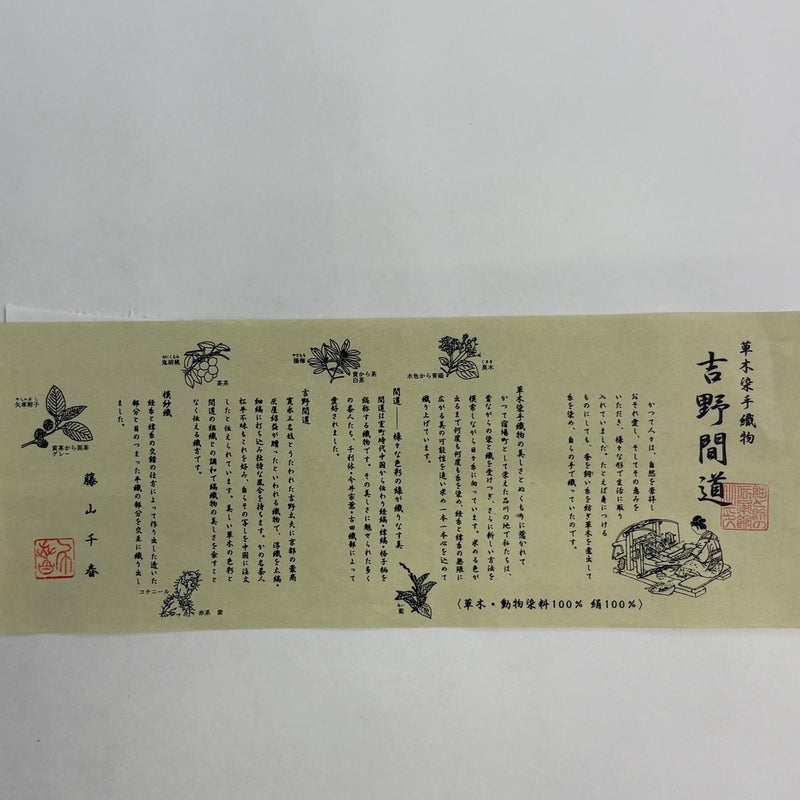 草木染手織物
吉野間道
かつて人々は、自然を崇拝し
おそれ愛し、そしてその恵みを
いただき、様々な形で生活に取り
入れていました。たとえば身につける
ものにしても、蚕を飼い糸を紡ぎ草木を煮出して
糸を染め、自らの手で織っていたのです。
草木染手織物の美しさとぬくもりに惹かれて
かつて宿場町として栄えた品川の地で私たちは、
昔ながらの染と織を受けつぎ、さらに新しい方法を
模索しながら日々糸に向っています。求める色が
出るまで何度も何度も糸を染め、経糸と緯糸の無限に
広がる美の可能性を追い求め一本一本心を込めて
織り上げています。
〈草木・動物染料100% 絹100%〉
くさき
臭木
水色から青磁
あい
藍
間道――様々な色彩の縁が織りなす美
間道は室町時代中国から伝わり経縞・緯縞・格子柄を
総称する織物です。その美しさに魅せられた多く
の茶人たち、千利休・今井宗薫・古田織部によって
愛好されました。
やまもも
楊梅
黄から茶
白茶
吉野間道
寛永三名妓とうたわれた吉野太夫に京都の豪商
灰屋紹益が贈ったといわれる織物で、浮織を太縞・
細縞に打ち込み独特な風合を持ちます。かの名茶人
松平不昧もこれを好み、自らその写しを中国に注文
したと伝えられています。美しい草木の色彩と
間道の組織との調和で縞織物の美しさを余すとこ
なく伝える織音です。
おにくるみ
鬼胡桃
茶系
コチニール
赤系 紫
模紗織
経糸と緯糸の交錯の仕方によって作り出した透いた
部分と目のつまった平織の部分を交互に織り出し
ました。
やしゃぶし
矢車附子
黄茶から黒茶
グレー
藤山千春